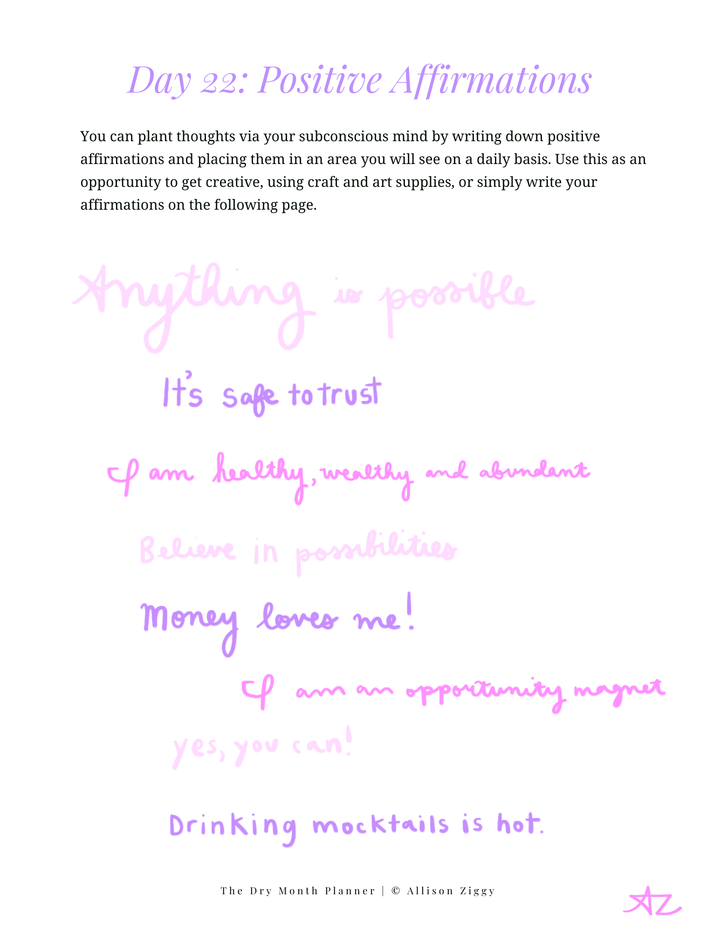 Day 22: Positive Affirmations
You can plant thoughts via your subconscious mind by writing down positive
affirmations and placing them in an area you will see on a daily basis. Use this as an
opportunity to get creative, using craft and art supplies, or simply write your
affirmations on the following page.
Anything is possible
It's safe to trust
I am healthy, wealthy and abundant
Believe in possibilities
Money loves me!
I am an opportunity magnet
yes, you can!
Drinking mocktails is hot.
The Dry Month Planner | © Allison Ziggy
AZ